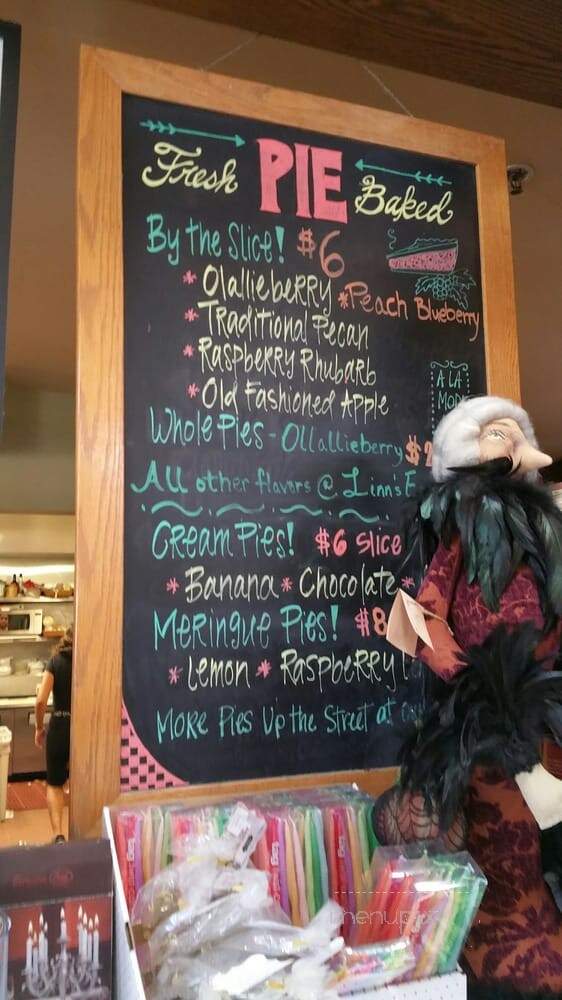 Fresh PIE Baked
By the Slice! $6
* Olallieberry * Peach Blueberry
* Traditional Pecan
* Raspberry Rhubarb
* Old Fashioned Apple
A LA
Whole Pies - Ollallieberry
All other flavors @ Linn's
Cream Pies! $6 slice
* Banana * Chocolate *
Meringue Pies! $8
* Lemon * Raspberry
More Pies Up the Street at
menupix